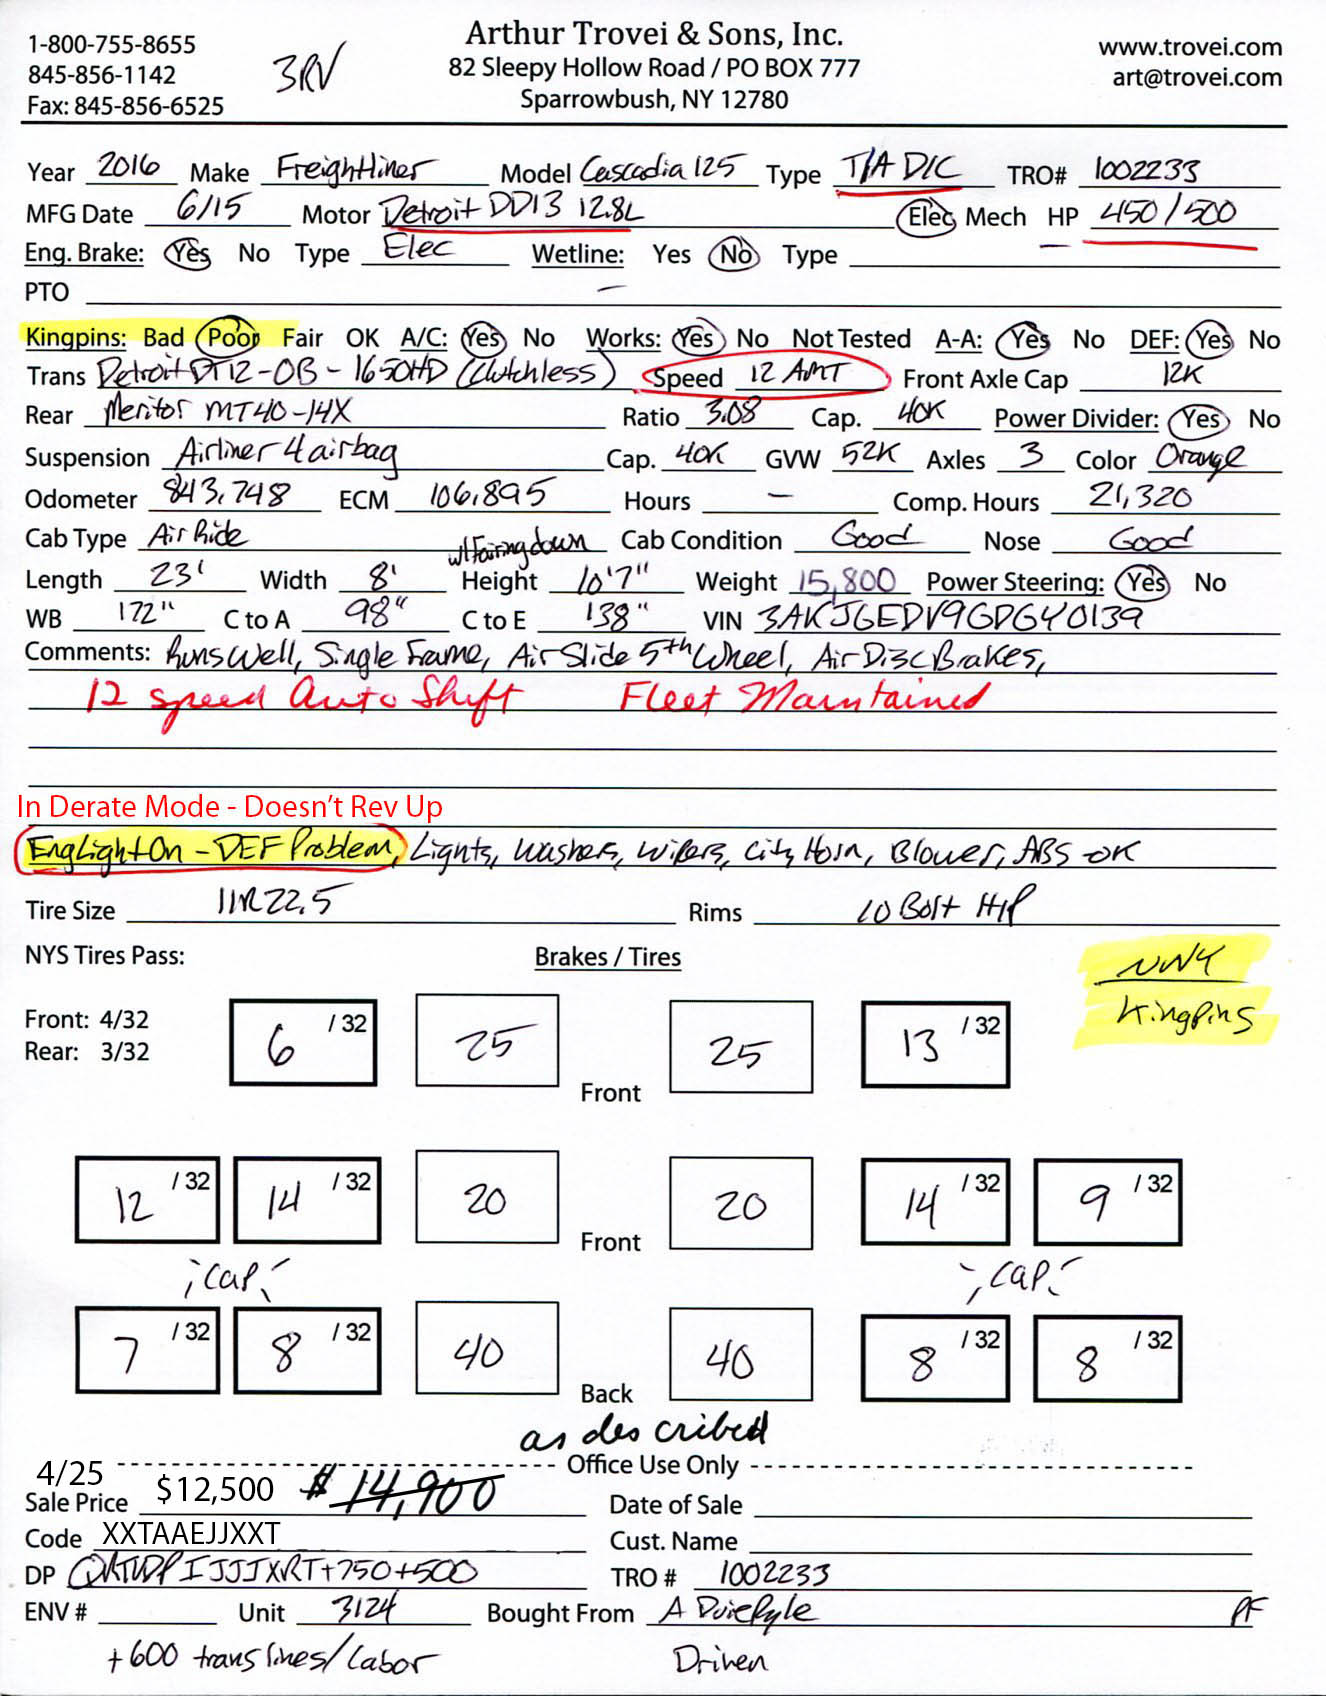 1-800-755-8655
845-856-1142
Fax: 845-856-6525
3RV
Arthur Trovei & Sons, Inc.
82 Sleepy Hollow Road / PO BOX 777
Sparrowbush, NY 12780
www.trovei.com
art@trovei.com
Year 2016 Make Freightliner Model Cascadia 125 Type T/A D/C TRO# 1002233
MFG Date 6/15 Motor Detroit DD13 12.8L Elec Mech HP 450/500
Eng. Brake: Yes No Type Elec Wetline: Yes No Type
PTO –
Kingpins: Bad Poor Fair OK A/C: Yes No Works: Yes No Not Tested A-A: Yes No DEF: Yes No
Trans Detroit DT12-OB-1650HD (Clutchless) Speed 12 AMT Front Axle Cap 12K
Rear Meritor MT40-14X Ratio 3.08 Cap. 40K Power Divider: Yes No
Suspension Airliner 4 airbag Cap. 40K GVW 52K Axles 3 Color Orange
Odometer 843,748 ECM 106,895 Hours – Comp. Hours 21,320
Cab Type Air Ride Cab Condition Good Nose Good
w/Fairing down
Length 23' Width 8' Height 10'7" Weight 15,800 Power Steering: Yes No
WB 172" C to A 98" C to E 138" VIN 3AKJGEDV9GDGY0139
Comments: Runs Well, Single Frame, Air Slide 5th Wheel, Air Disc Brakes,
12 speed Auto Shift Fleet Maintained
In Derate Mode - Doesn't Rev Up
Eng Light On - DEF Problem, Lights, Washers, Wipers, City Horn, Blower, ABS - OK
Tire Size 11R22.5 Rims 10 Bolt H/P
NYS Tires Pass: Brakes / Tires
NWY
Kingpins
Front: 4/32
Rear: 3/32
6 /32 25 Front 25 13 /32
12 /32 14 /32 20 Front 20 14 /32 9 /32
; Cap. ; Cap.
7 /32 8 /32 40 Back 40 8 /32 8 /32
as described
Office Use Only
4/25
Sale Price $12,500 $14,900 Date of Sale
Code XXTAAEJJXXT Cust. Name
DP +750+500 TRO # 1002233
ENV # Unit 3124 Bought From A Duie Pyle PF
+600 trans lines/Labor Driven